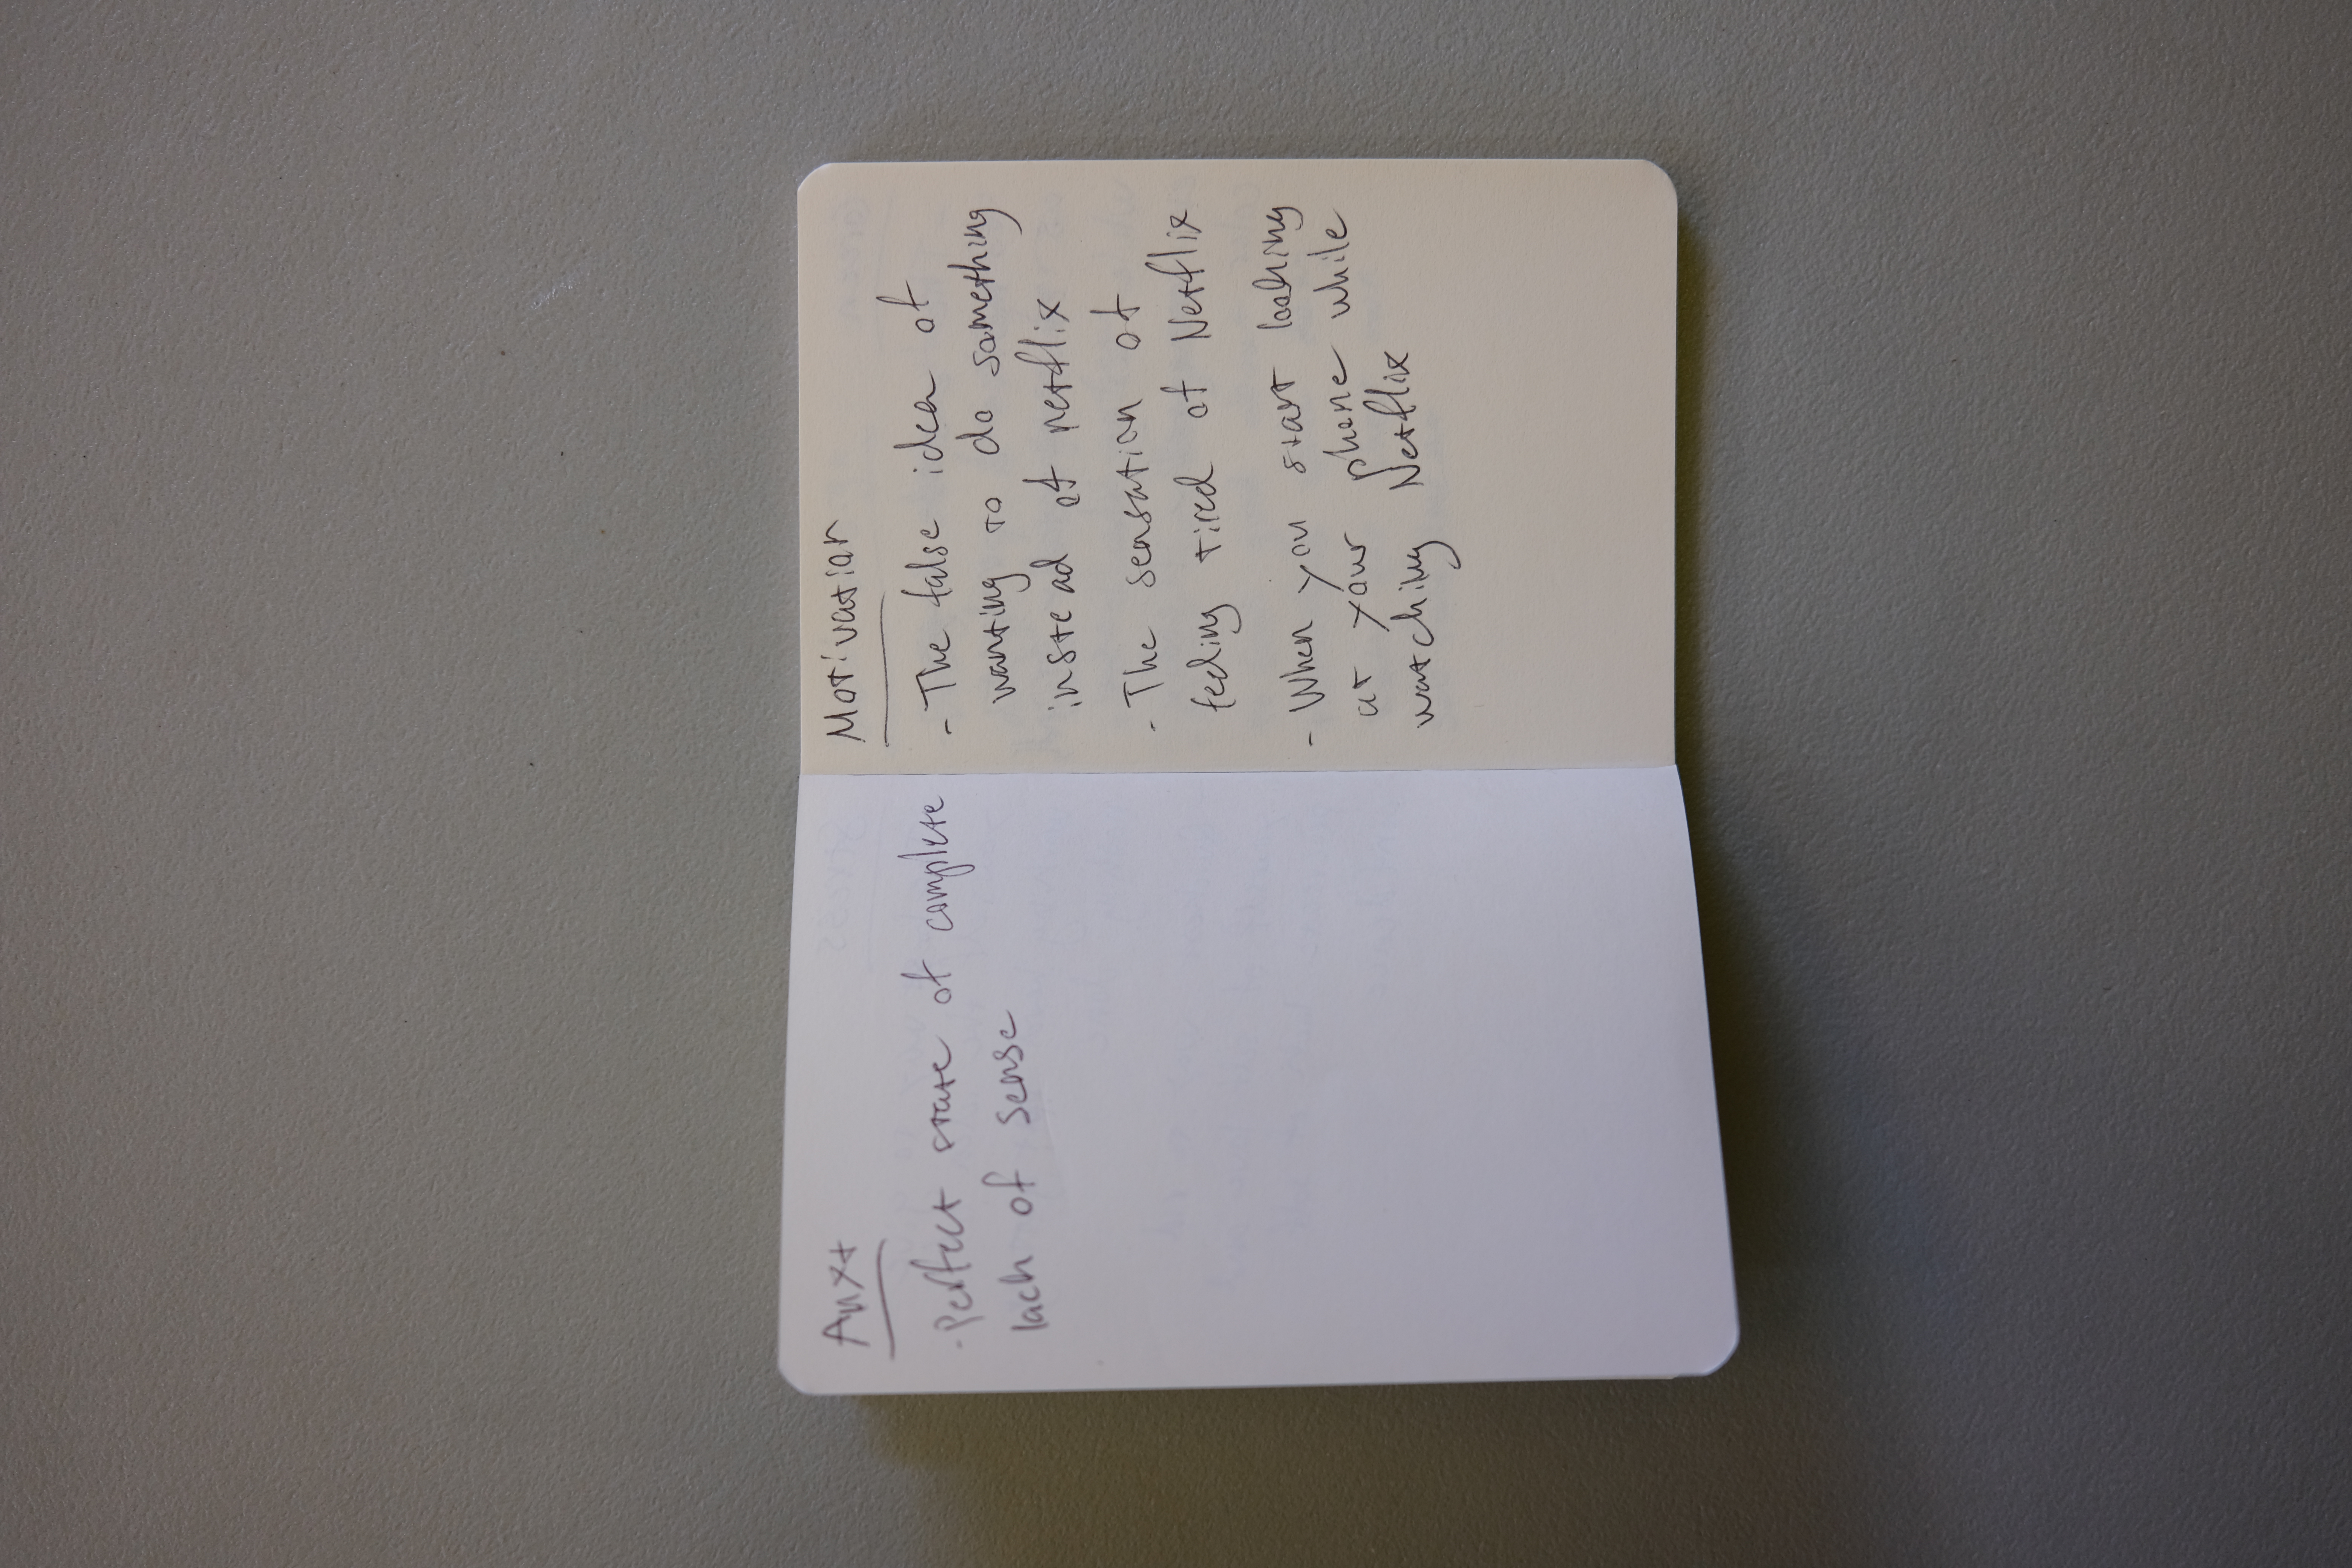 Anxt
- Perfect state of complete
lack of sense
Motivation
- The false idea of
wanting to do something
instead of netflix
- The sensation of
feeling tired of Netflix
- When you start looking
at your phone while
watching Netflix